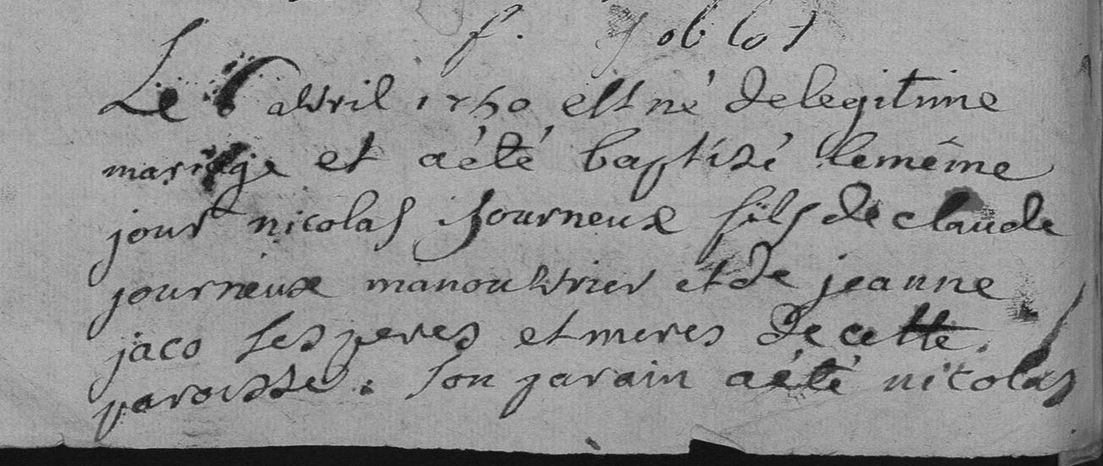 f. Joblot
Le 6 avvril 1750 est né de legitime
mariage et a été baptisé le même
jour nicolas Journeux fils de claude
journeux manouvvrier et de jeanne
jaco ses peres et meres de cette
paroisse. son parain a été nicolas